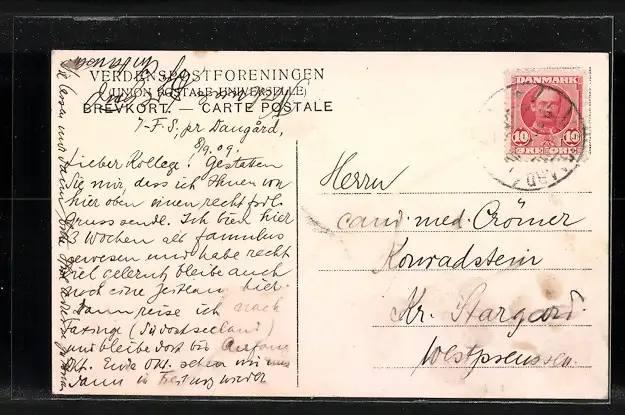 VERDENSPOSTFORENINGEN
(UNION POSTALE UNIVERSELLE)
BREVKORT. — CARTE POSTALE
DANMARK
10 10
ØRE ØRE
7-F-S, pr Daugård,
8/9.09.
Lieber Kollege! Gestatten
Sie mir, dass ich Ihnen von
hier oben einen recht frdl.
Gruss sende. Ich bin hier
3 Wochen als famulus
gewesen und habe recht
viel gelernt, bleibe auch
noch eine hier.
Dann reise ich nach
(Südostseeland)
und bleibe dort bis Anfang
Okt. Ende Okt. sehen wir uns
dann in wieder
Herrn
cand. med. Crömer
Konradstein
Kr. Stargard.
Westpreussen.